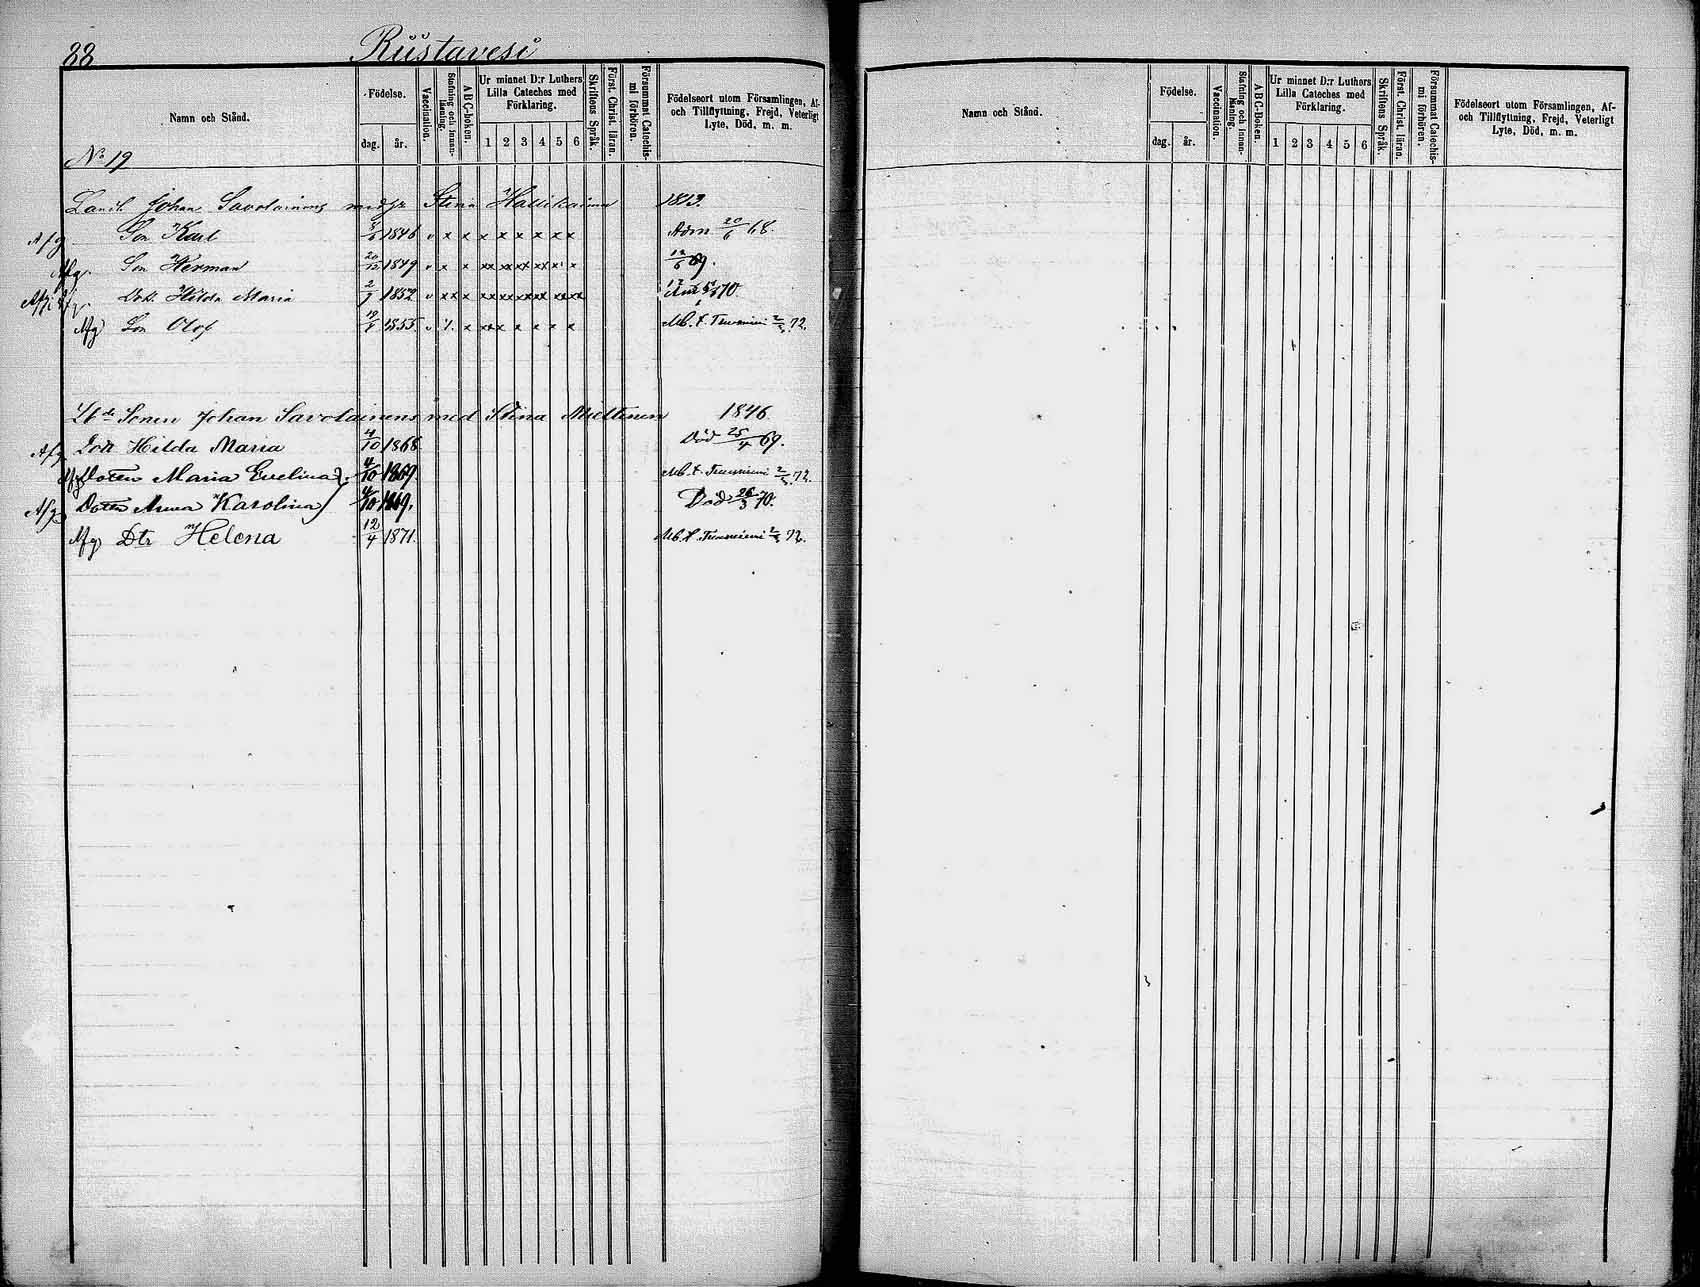 88 Riistavesi
Namn och Stånd. Födelse. dag. år. Vaccination. Stafning och innan-läsning. ABC-boken. Ur minnet D:r Luthers Lilla Cateches med Förklaring. 1 2 3 4 5 6 Skriftens Språk. Först. Christ. läran. Försummat Catechis-mi förhören. Födelseort utom Församlingen, Af- och Tillflyttning, Frejd, Veterligt Lyte, Död, m. m.
No 19
Johan Savolainens med Stina 1843.
Afg Son Karl 1846 v x x x x x x x x Adm 20/6 68.
Afg. Son Herman 20/12 1849 v x x xx xx xx xx x x 12/6 69.
Dott. Hilda Maria 2/7 1852 v xx x xx xx xx xx xx xx 70
Afg Son Olof 1855 v x x x x x x x Mb. t. Tuusniemi 2/3 72.
Lbde Sonen Johan Savolainens med Stina Miettinen 1846
Afg Dott Hilda Maria 4/10 1868 Död 25/4 69.
Afg Dotten Maria Evelina 4/10 1869. Mb. t. Tuusniemi 2/3 72.
Afg Dotten Anna Karolina 4/10 1869. Död 26/3 70.
Afg Dtr Helena 12/4 1871. Mb. t. Tuusniemi 2/3 72.
Namn och Stånd. Födelse. dag. år. Vaccination. Stafning och innan-läsning. ABC-Boken. Ur minnet D:r Luthers Lilla Cateches med Förklaring. 1 2 3 4 5 6 Skriftens Språk. Först. Christ. läran. Försummat Catechis-mi förhören. Födelseort utom Församlingen, Af- och Tillflyttning, Frejd, Veterligt Lyte, Död, m. m.